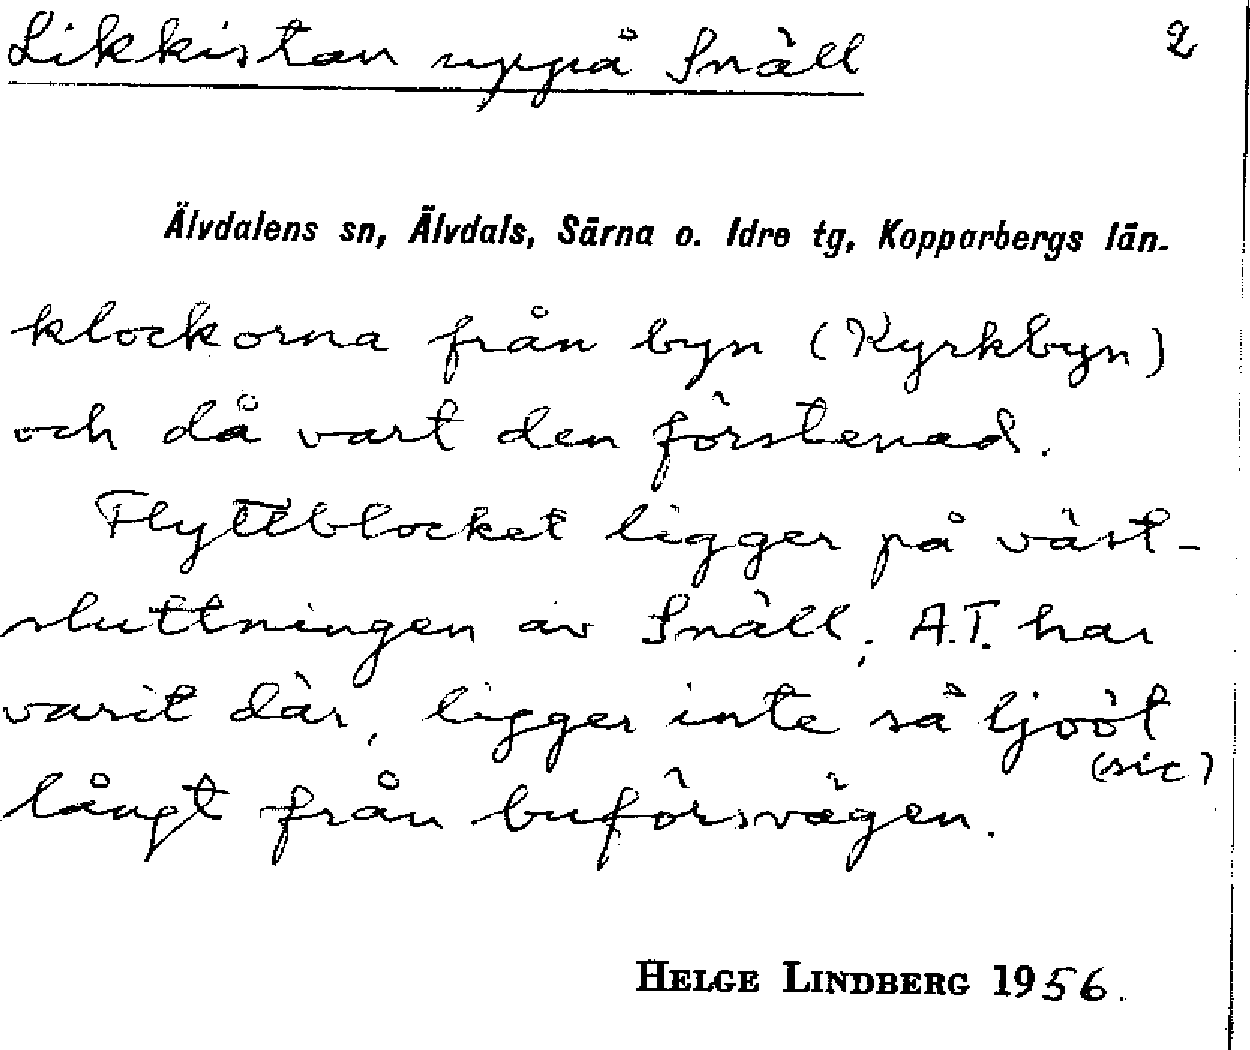 Likkistan uppå Snäll 2
Älvdalens sn, Älvdals, Särna o. Idre tg, Kopparbergs län.
klockorna från byn (Kyrkbyn)
och då vart den förstenad.
Flyttblocket ligger på väst-
sluttningen av Snäll; A.T. har
varit där, ligger inte så ljööt
(sic)
långt från buförsvägen.
HELGE LINDBERG 1956.